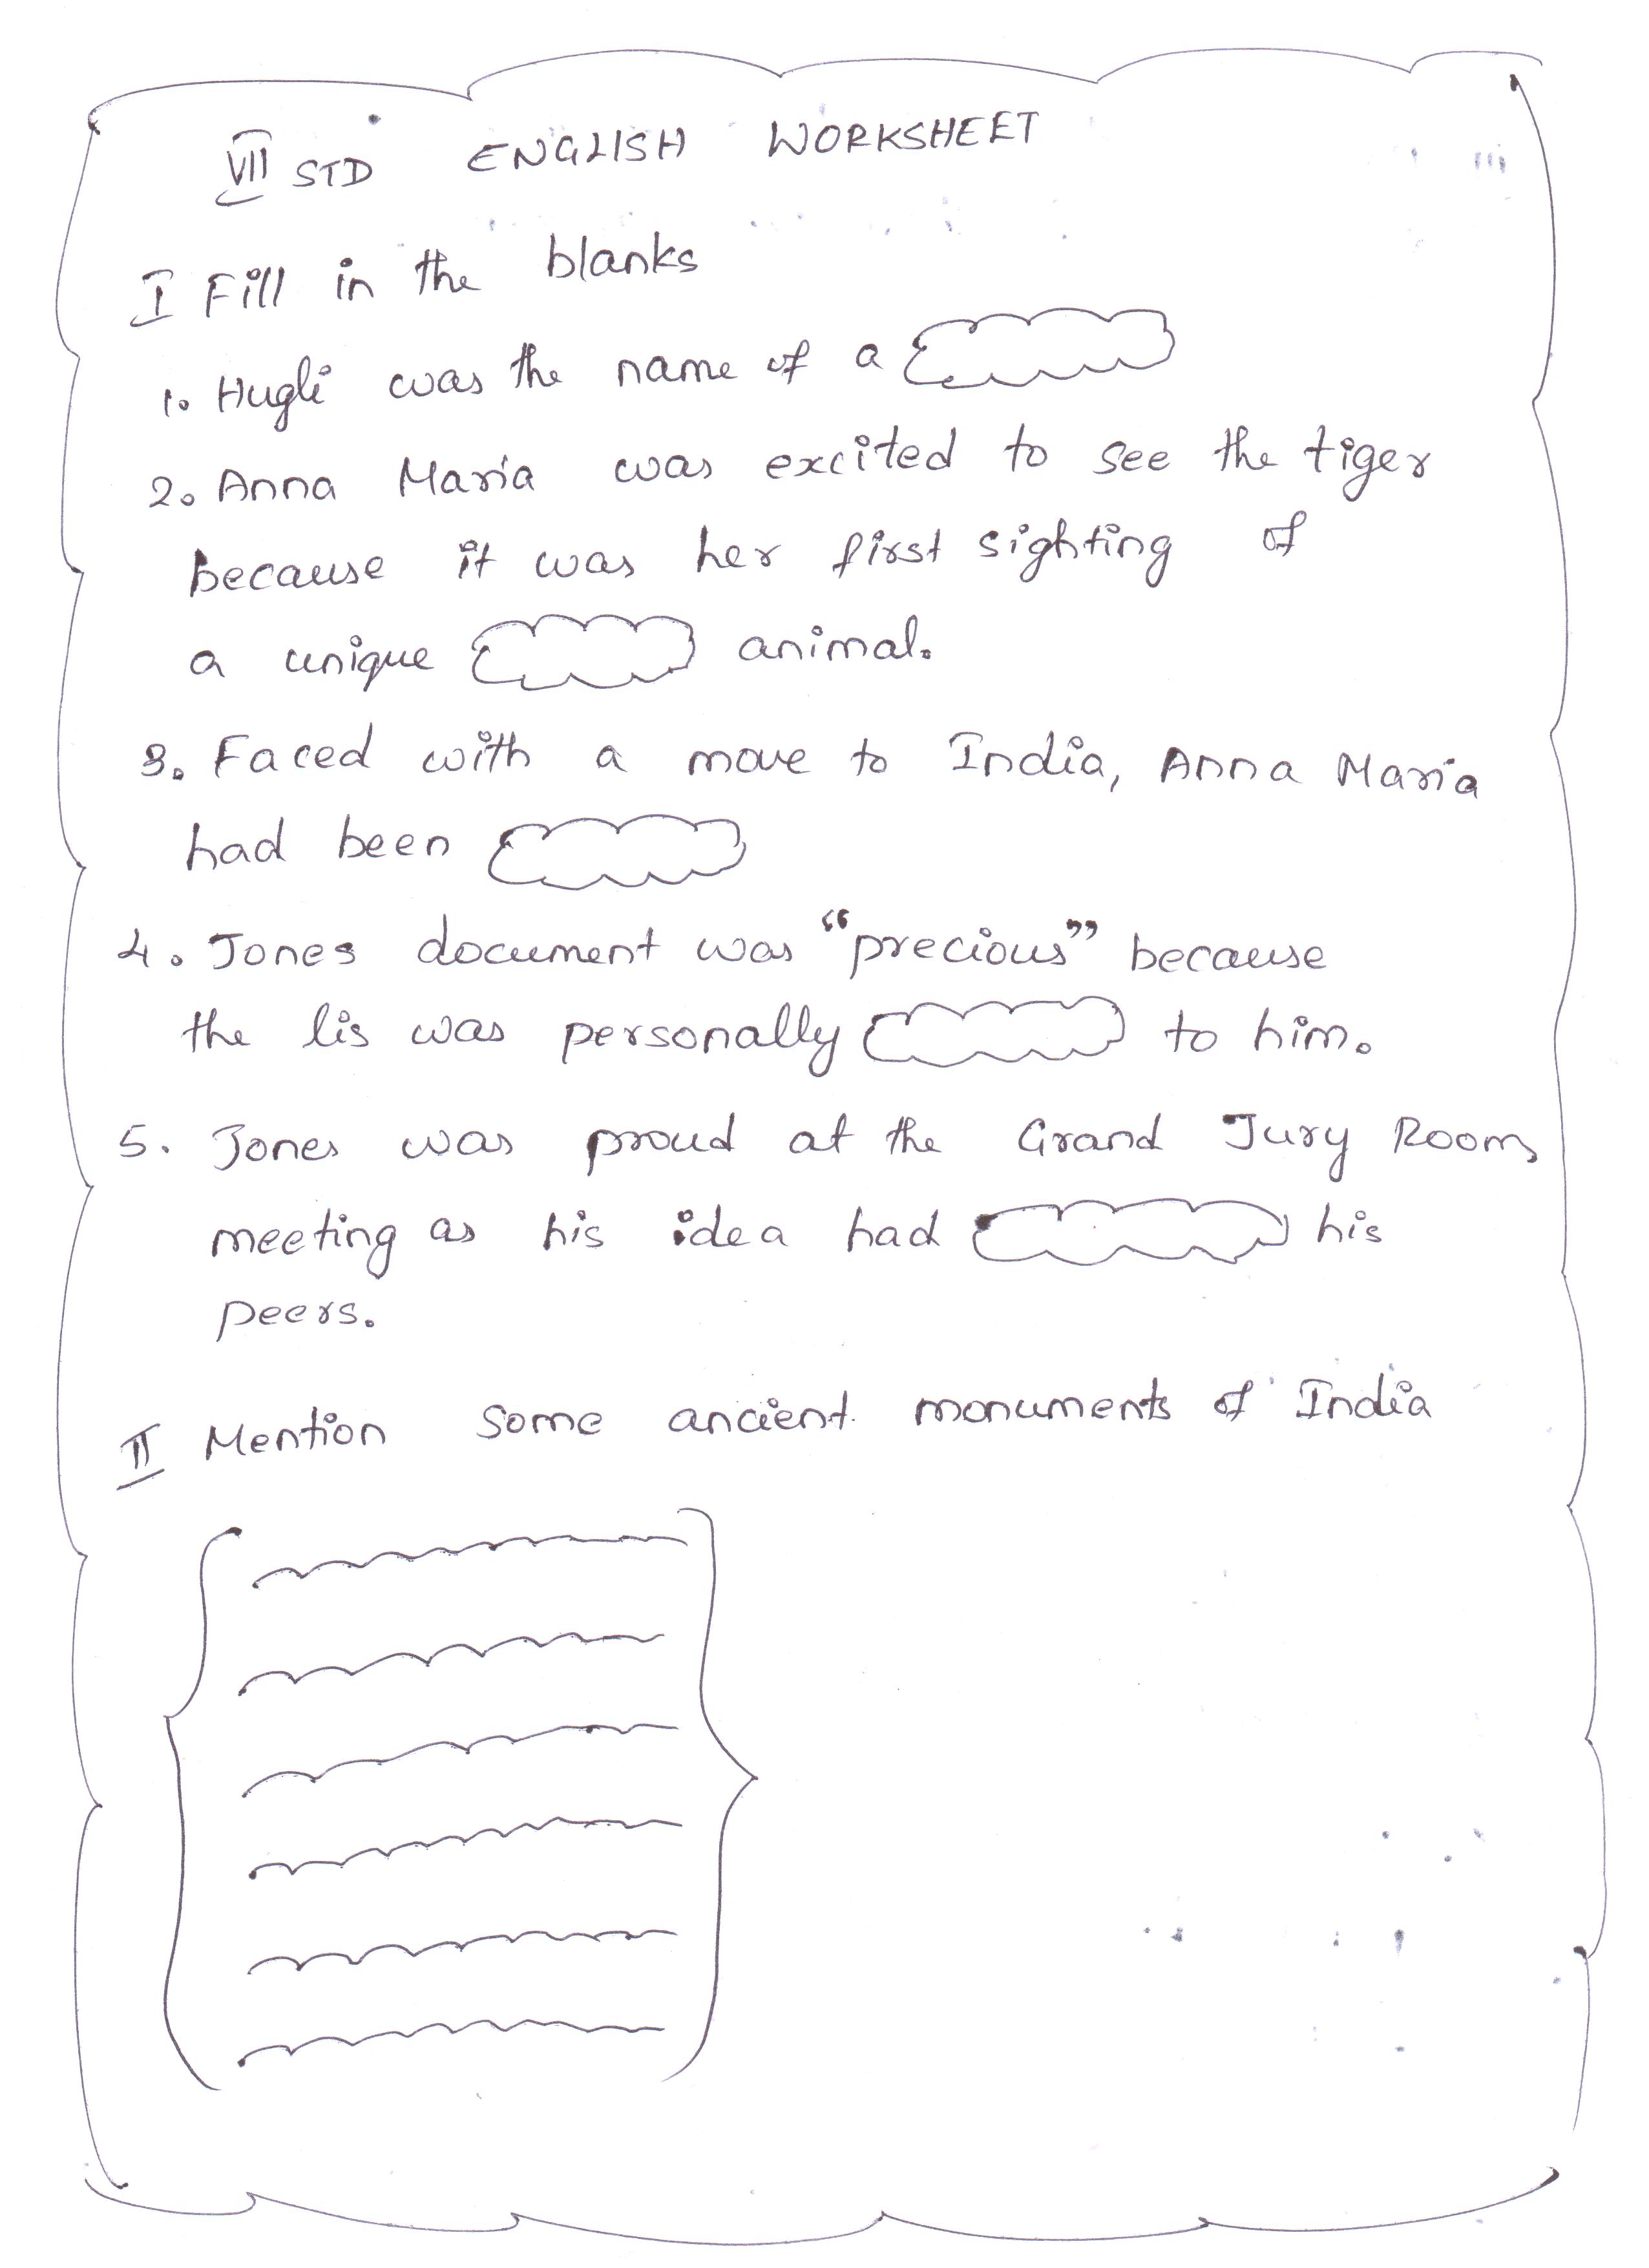 VII STD ENGLISH WORKSHEET
I Fill in the blanks
1. Hugli was the name of a
2. Anna Maria was excited to see the tiger
because it was her first sighting of
a unique animal.
3. Faced with a move to India, Anna Maria
had been
4. Jones document was "precious" because
the lis was personally to him.
5. Jones was proud at the Grand Jury Room,
meeting as his idea had his
peers.
II Mention some ancient monuments of India